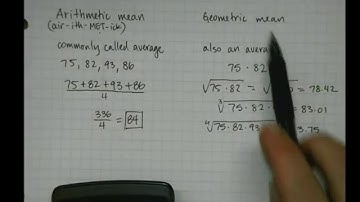 Arithmetic mean
(air-ith-MET-ick)
commonly called average
75, 82, 93, 86
75+82+93+86
4
336
4
= 84
Geometric mean
also an avera
75 · 82
√75·82 = √ = 78.42
∛75·82· = 83.01
∜75·82·93 3.75